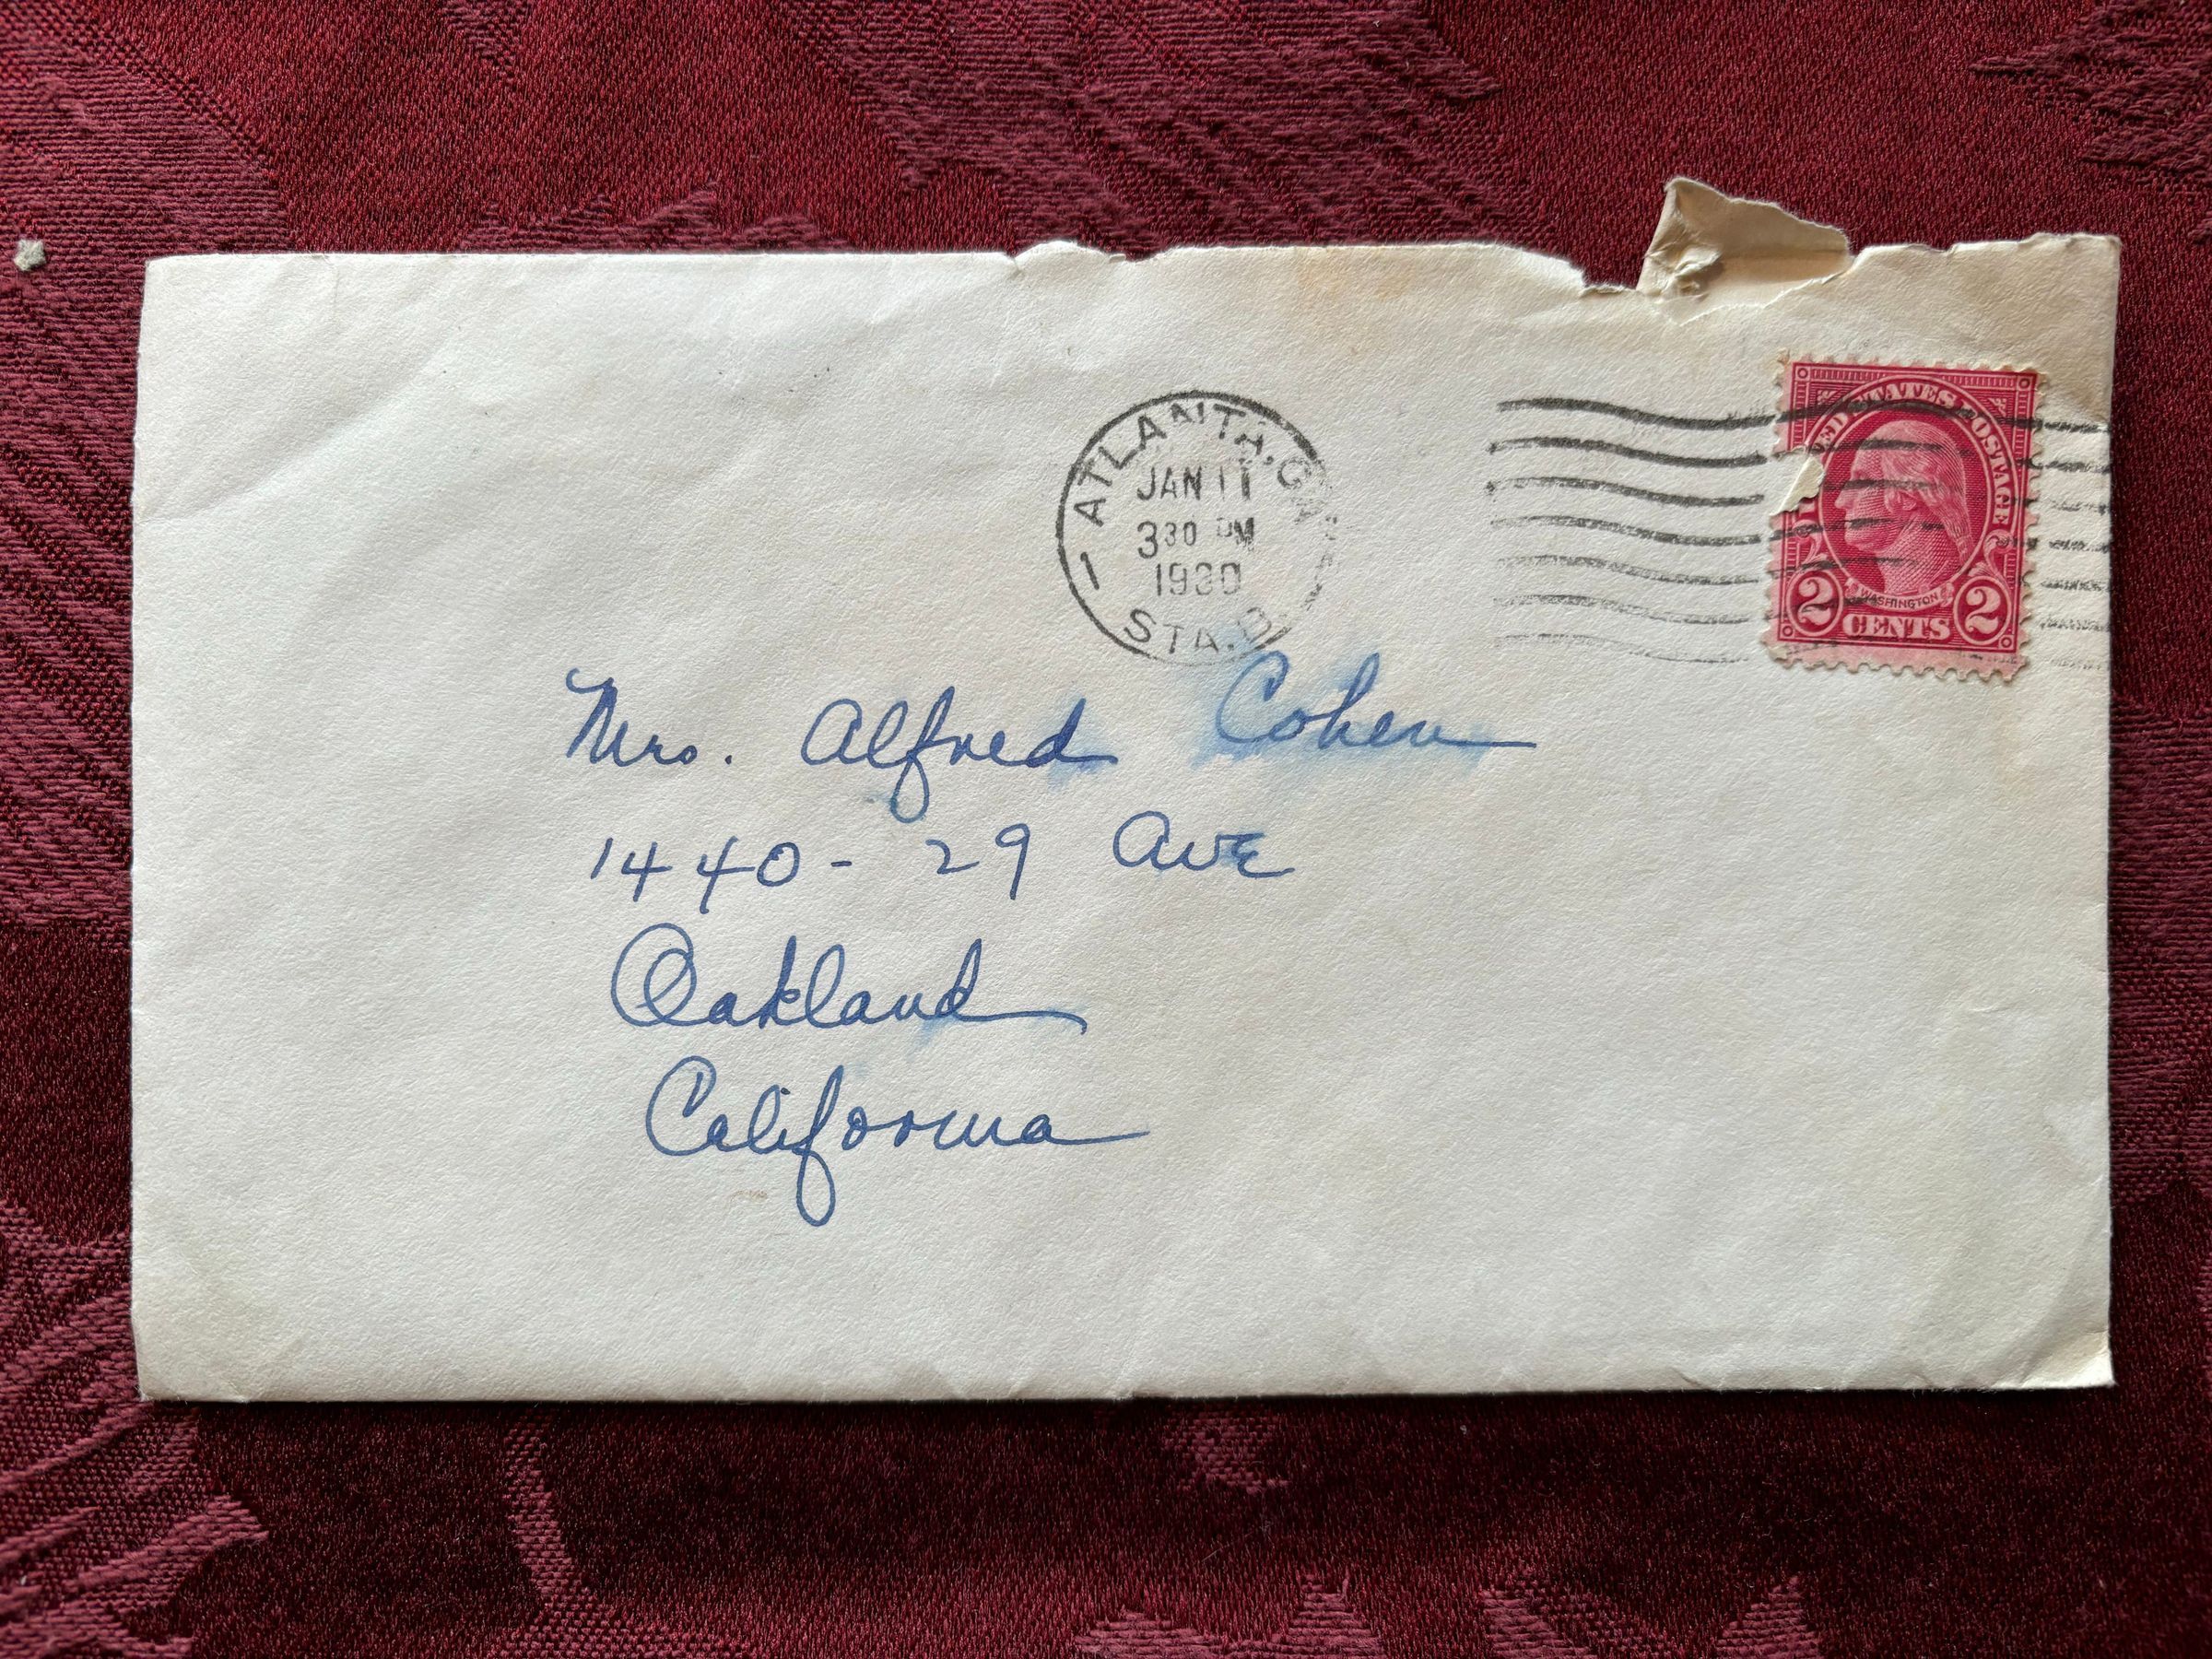 ATLANTA, GA.
JAN 11
3 30 PM
1930
1
STA. D
UNITED STATES POSTAGE
WASHINGTON
2 CENTS 2
Mrs. Alfred Cohen
1440 - 29 Ave
Oakland
California